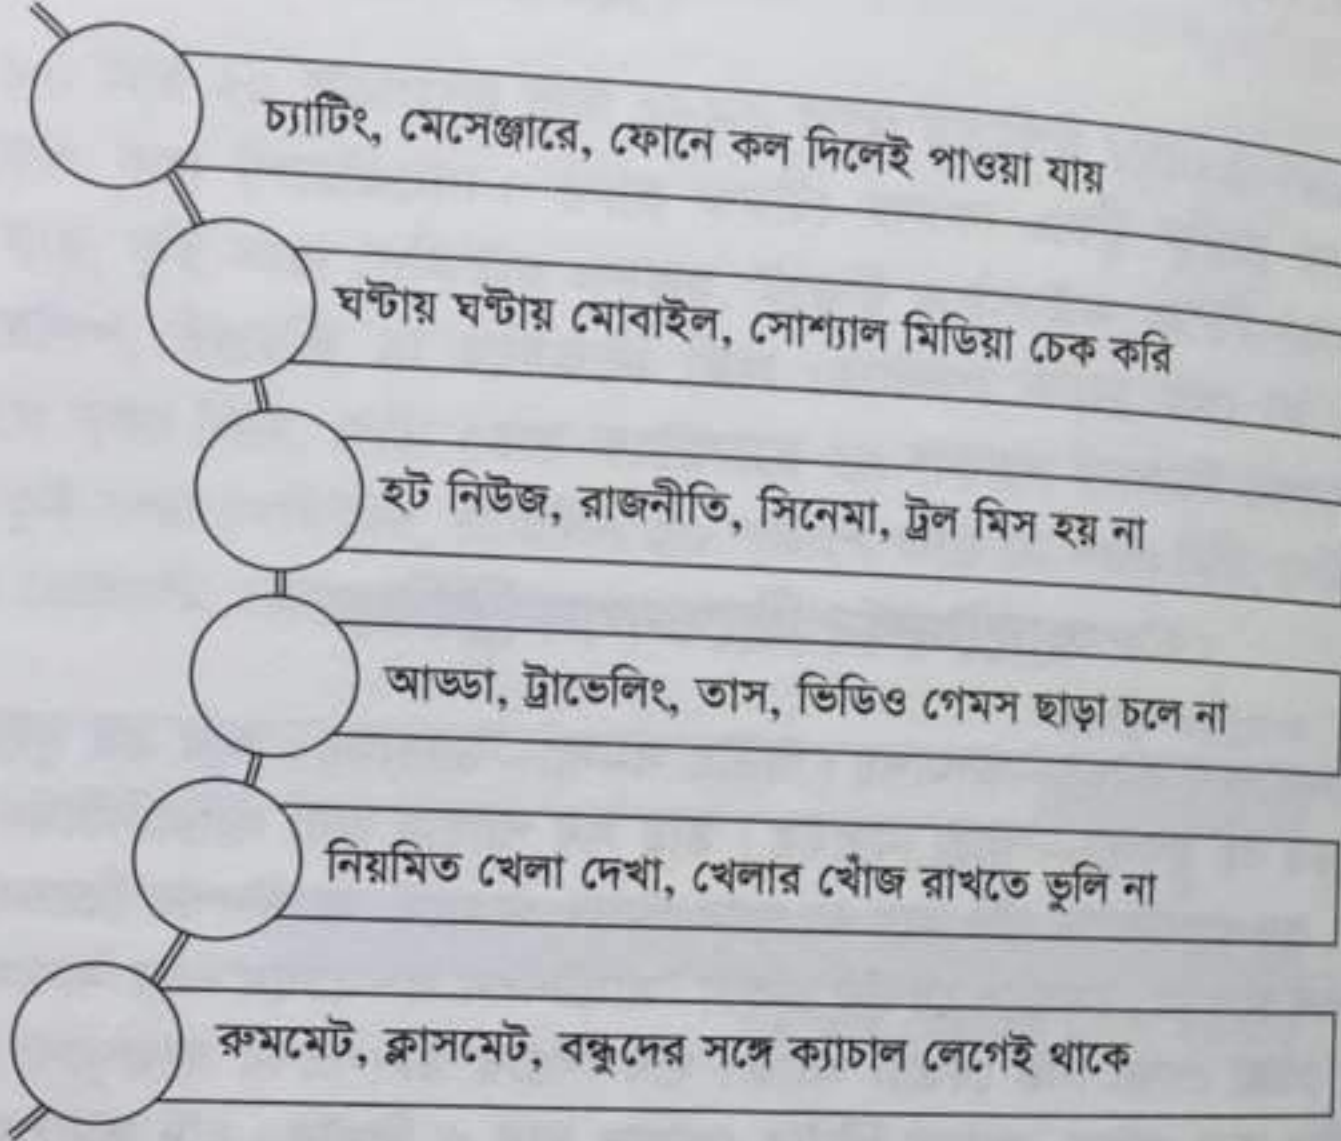 চ্যাটিং, মেসেঞ্জারে, ফোনে কল দিলেই পাওয়া যায়
ঘণ্টায় ঘণ্টায় মোবাইল, সোশ্যাল মিডিয়া চেক করি
হট নিউজ, রাজনীতি, সিনেমা, ট্রল মিস হয় না
আড্ডা, ট্রাভেলিং, তাস, ভিডিও গেমস ছাড়া চলে না
নিয়মিত খেলা দেখা, খেলার খোঁজ রাখতে ভুলি না
রুমমেট, ক্লাসমেট, বন্ধুদের সঙ্গে ক্যাচাল লেগেই থাকে